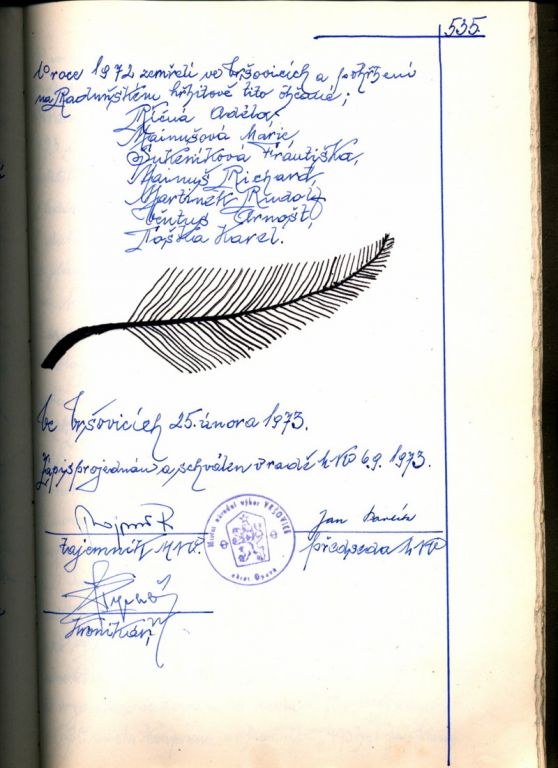 535.
V roce 1972 zemřeli ve Vršovicích a pohřbeni
na Raduňském hřbitově tito občané;
Říčná Adéla,
Mainušová Marie,
Sukeníková Františka,
Mainuš Richard,
Martinek Rudolf,
Ventus Arnošt,
Taška Karel.
Ve Vršovicích 25. února 1973.
Zápis projednán a schválen v radě MNV 6.9. 1973.
Jan
tajemník MNV.
předseda MNV
Místní národní výbor VRŠOVICE
okres Opava
kronikář,